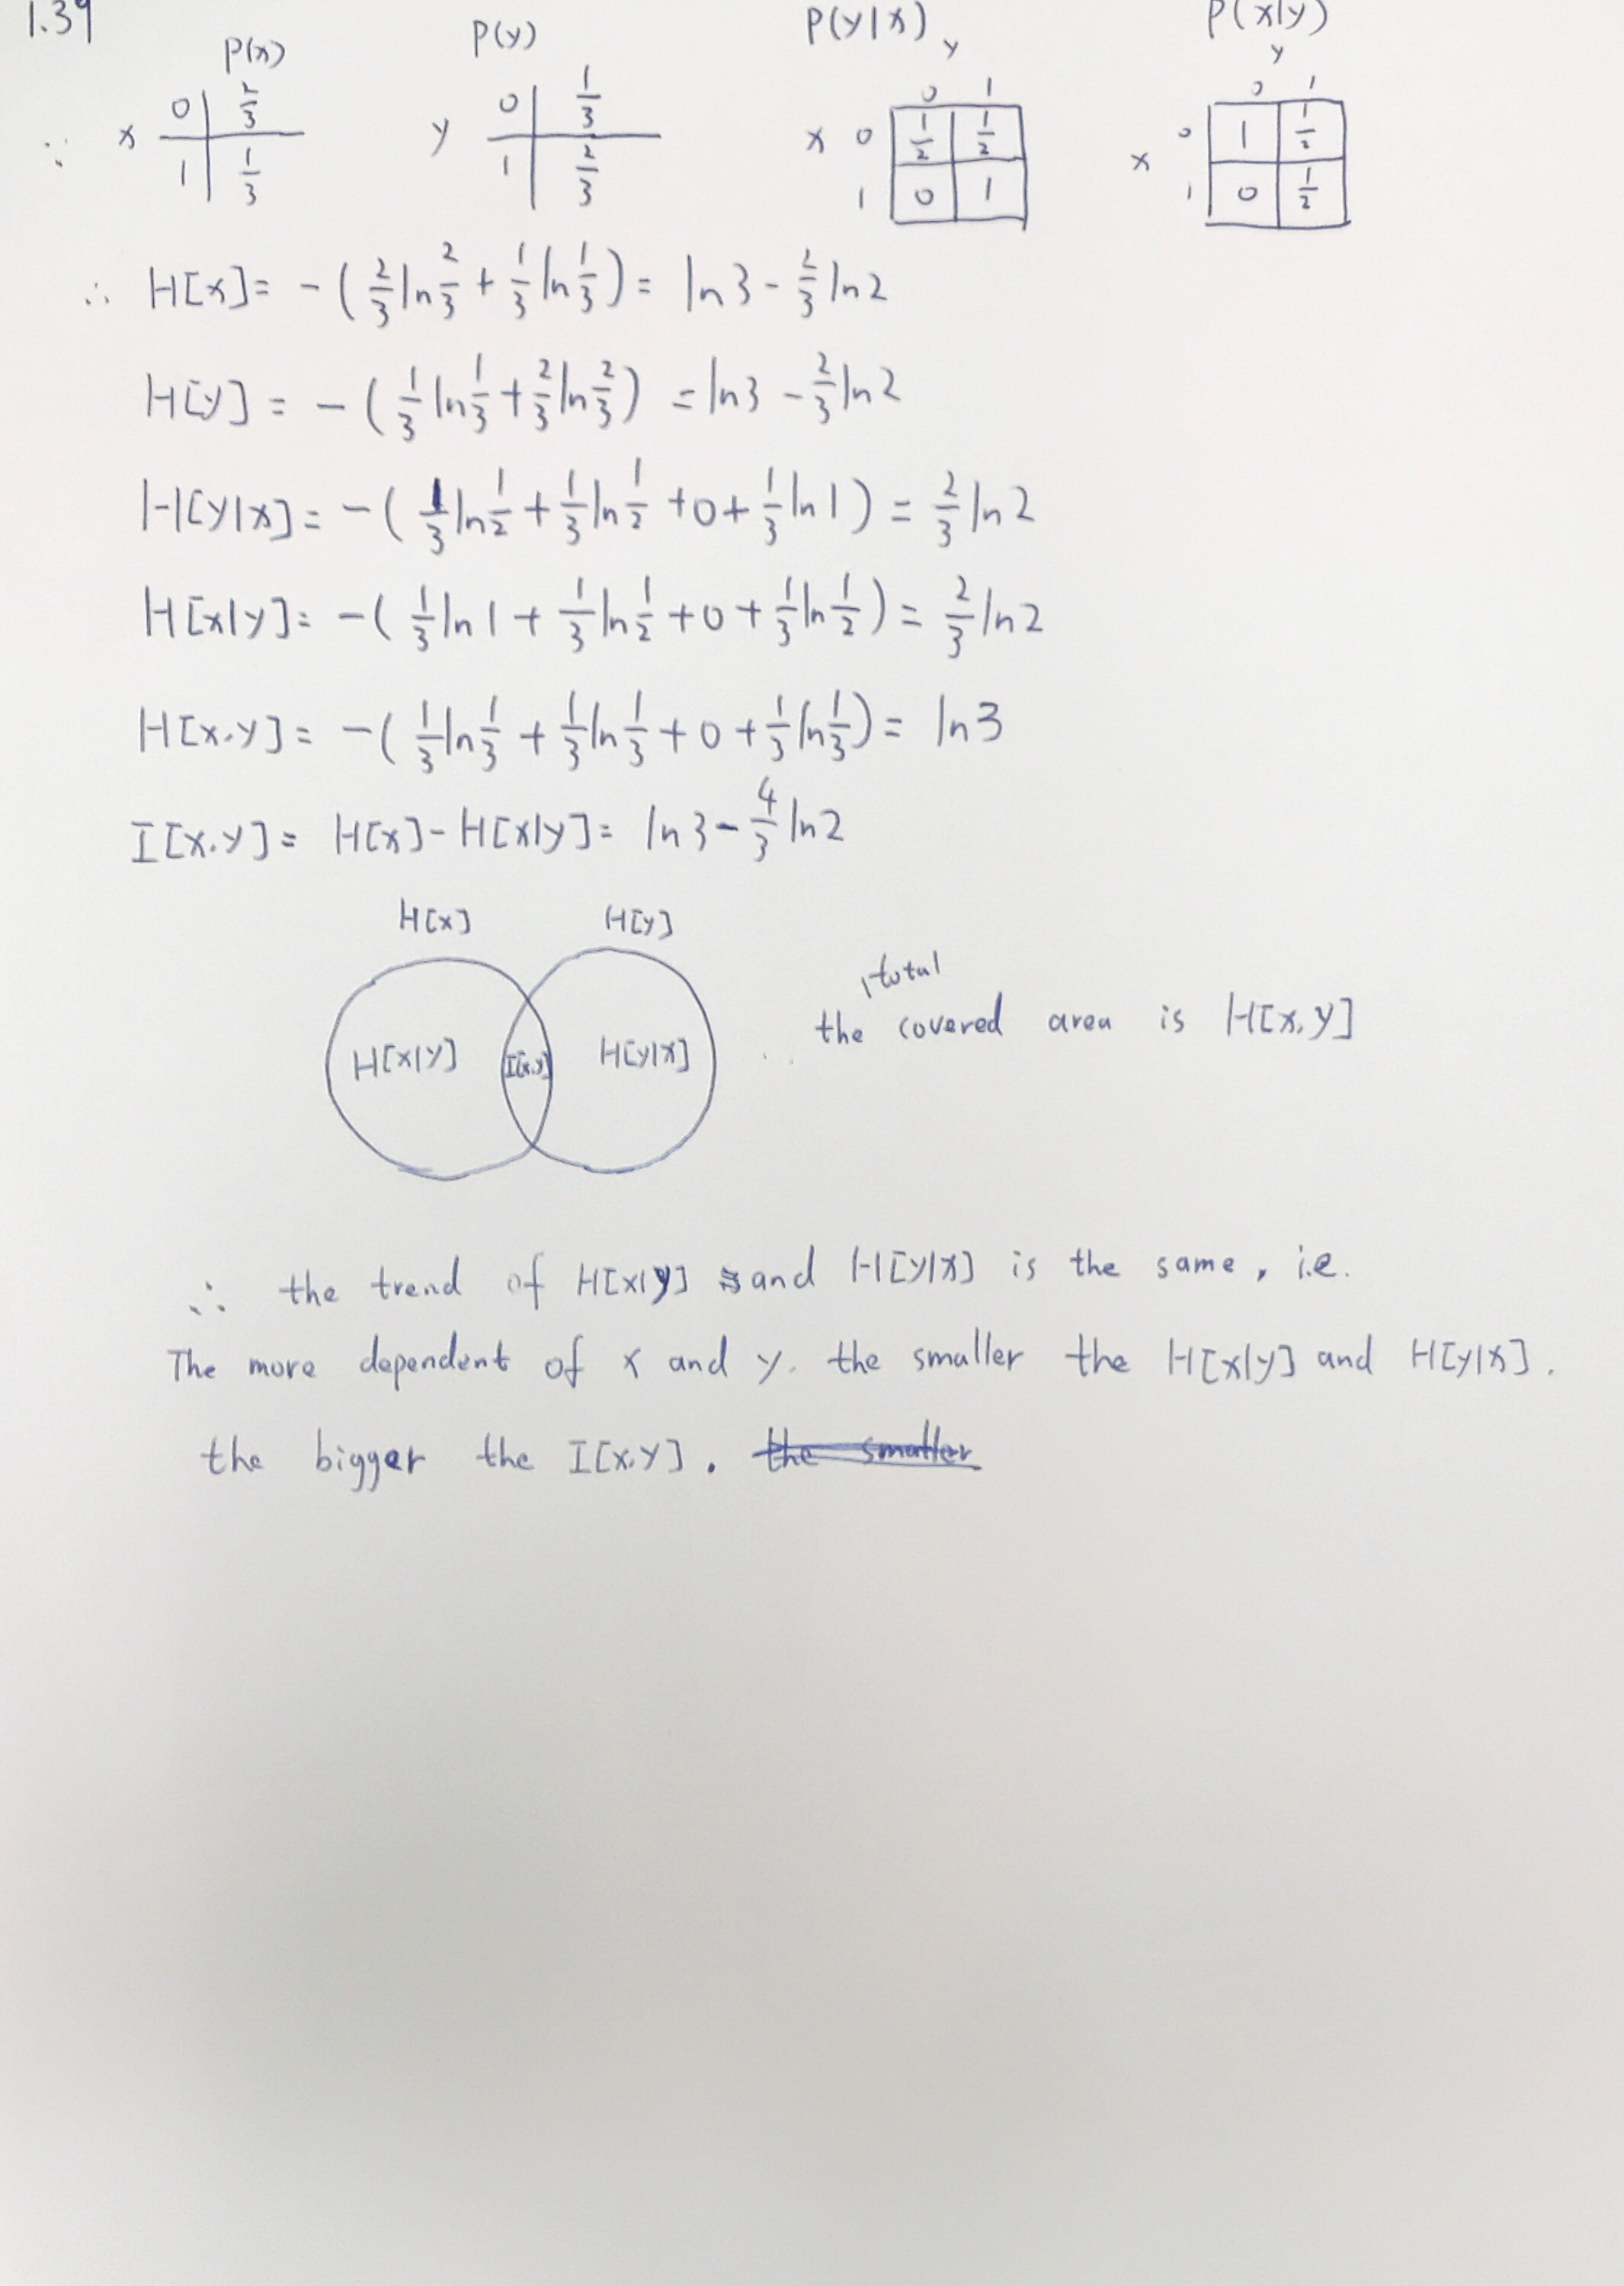 1.39
P(x) P(y) P(y|x) P(x|y)
y y
0 1 0 1
∵ x 0 2/3 y 0 1/3 x 0 1/2 1/2 x 0 1 1/2
1 1/3 1 2/3 1 0 1 1 0 1/2
∴ H[x] = -(2/3 ln 2/3 + 1/3 ln 1/3) = ln3 - 2/3 ln2
H[y] = -(1/3 ln 1/3 + 2/3 ln 2/3) = ln3 - 2/3 ln2
H[y|x] = -(1/3 ln 1/2 + 1/3 ln 1/2 + 0 + 1/3 ln 1) = 2/3 ln2
H[x|y] = -(1/3 ln 1 + 1/3 ln 1/2 + 0 + 1/3 ln 1/2) = 2/3 ln2
H[x,y] = -(1/3 ln 1/3 + 1/3 ln 1/3 + 0 + 1/3 ln 1/3) = ln3
I[x,y] = H[x] - H[x|y] = ln3 - 4/3 ln2
H[x] H[y]
total
the covered area is H[x,y]
H[x|y] I[x,y] H[y|x]
∴ the trend of H[x|y] and H[y|x] is the same, i.e.
The more dependent of x and y, the smaller the H[x|y] and H[y|x].
the bigger the I[x,y]. the smaller